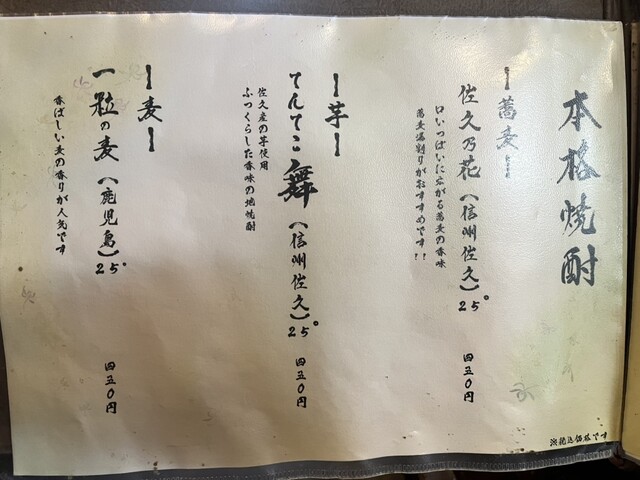 本格焼酎
ー蕎麦ー
佐久乃花(信州佐久)25°
四五〇円
口いっぱいに広がる蕎麦の香味
蕎麦湯割りがおすすめです!!
ー芋ー
てんてこ舞(信州佐久)25°
四五〇円
佐久産の芋使用
ふっくらした香味の地焼酎
ー麦ー
一粒の麦(鹿児島)25°
四五〇円
香ばしい麦の香りが人気です
消税込価格です